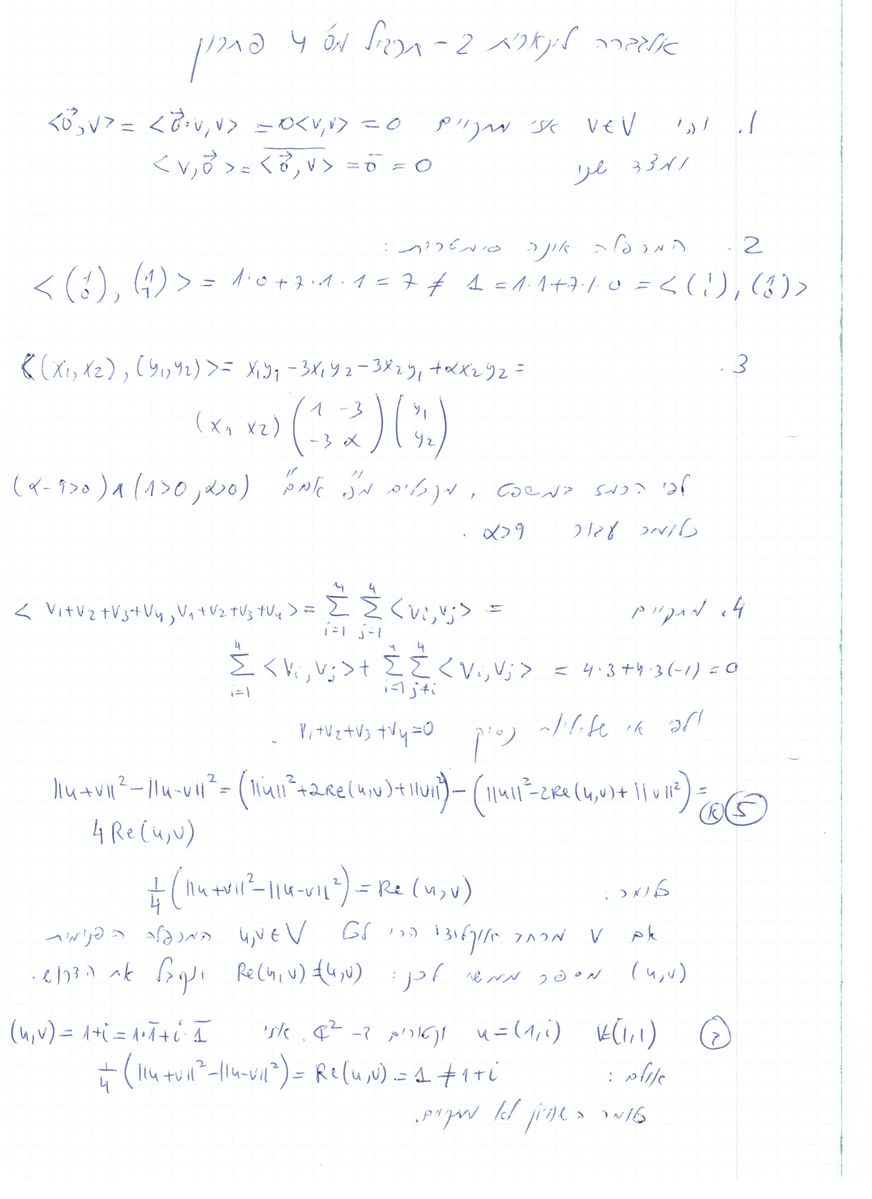 אלגברה לינארית 2 - תרגיל מס' 4 פתרון
1. יהי v∈V אזי מתקיים <0⃗,v> = <0⃗·v,v> = 0<v,v> = 0
ומצד שני <v,0⃗> = \overline{<0⃗,v>} = \overline{0} = 0
2. המכפלה אינה סימטרית:
<(1 0), (1 1)> = 1·0+7·1·1 = 7 ≠ 1 = 1·1+7·1·0 = <(1 1), (1 0)>
3. <(x₁,x₂),(y₁,y₂)> = x₁y₁-3x₁y₂-3x₂y₁+αx₂y₂ =
(x₁ x₂) (1 -3 / -3 α) (y₁ / y₂)
לפי הרמז במשפט, מקבלים מ"פ אםם" (α-9>0)∧(1>0, α>0)
כלומר עבור α>9.
4. מתקיים <v₁+v₂+v₃+v₄, v₁+v₂+v₃+v₄> = Σ_{i=1}^{4} Σ_{j=1}^{4} <vᵢ,vⱼ> =
Σ_{i=1}^{4} <vᵢ,vⱼ> + Σ_{i=1}^{4} Σ_{j≠i}^{4} <vᵢ,vⱼ> = 4·3+4·3(-1) = 0
ולפי אי שליליות נסיק v₁+v₂+v₃+v₄=0.
5 א ||u+v||²-||u-v||² = (||u||²+2Re(u,v)+||v||²)-(||u||²-2Re(u,v)+||v||²) =
4Re(u,v)
כלומר: ¼(||u+v||²-||u-v||²) = Re(u,v)
אם V מרחב אוקלידי הרי לכל u,v∈V המכפלה הפנימית
(u,v) מספר ממשי לכן: Re(u,v)=(u,v) ונקבל את הדרוש.
ב v=(1,1) u=(1,i) וקטורים ב- ℂ². אזי (u,v) = 1+i = 1·\overline{1}+i·\overline{1}
אולם: ¼(||u+v||²-||u-v||²) = Re(u,v) = 1 ≠ 1+i
כלומר השוויון לא מתקיים.